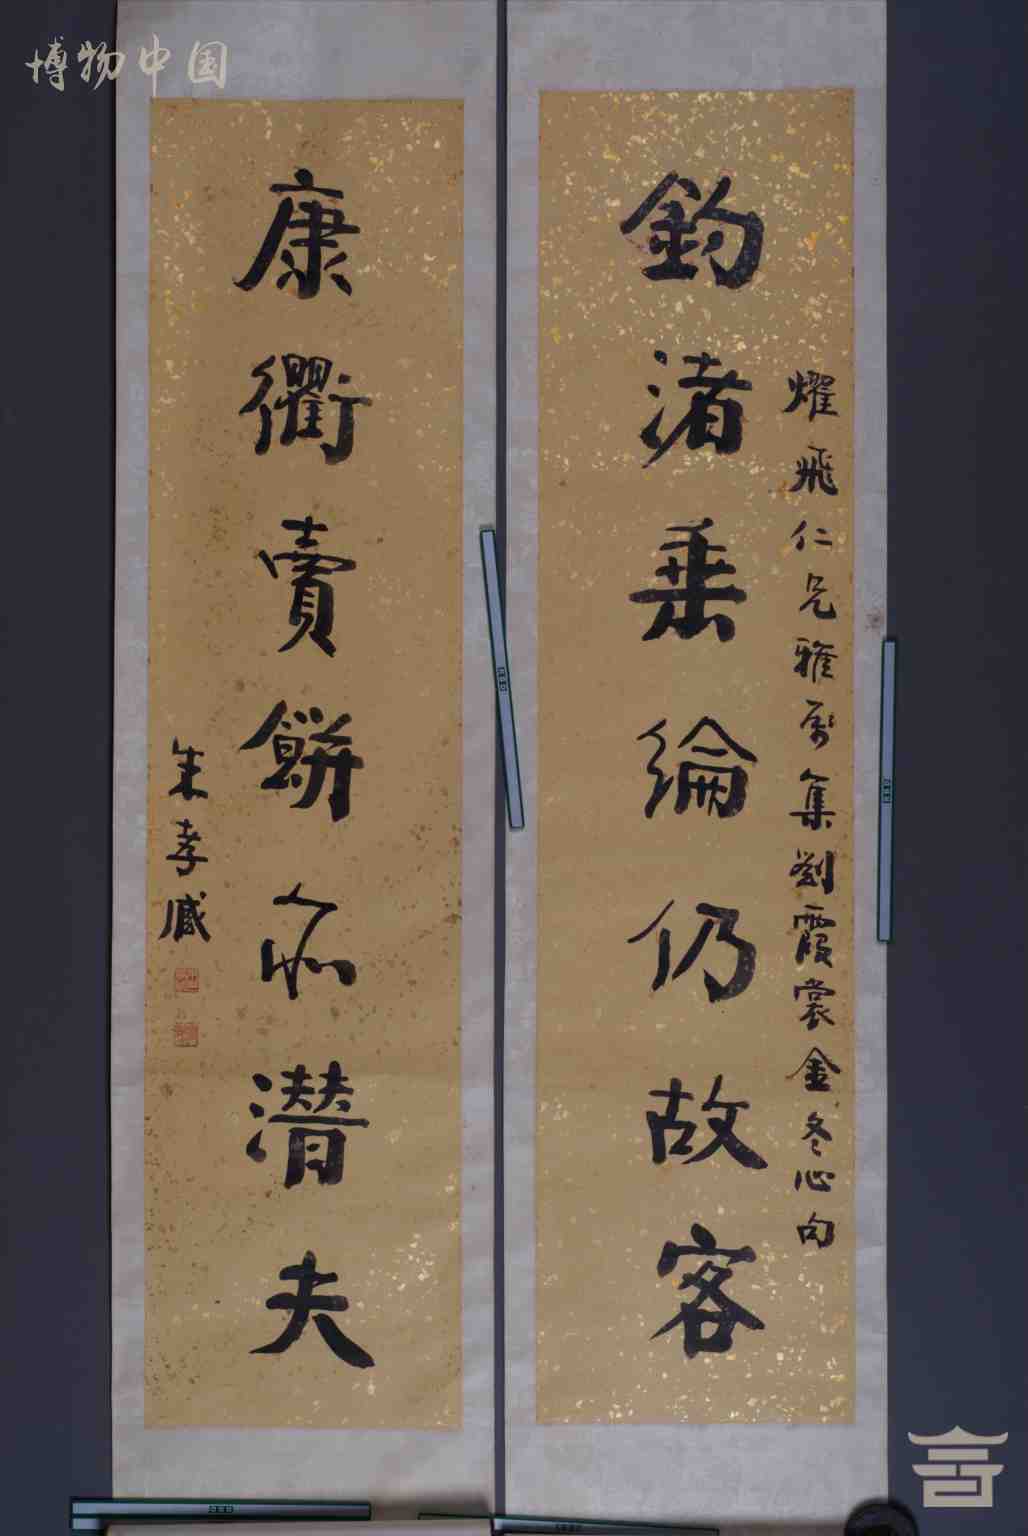 博物中国
燿飛仁兄雅屬集劉霞裳金冬心句
釣渚垂綸仍故客
康衢賣餅亦潛夫
朱孝臧